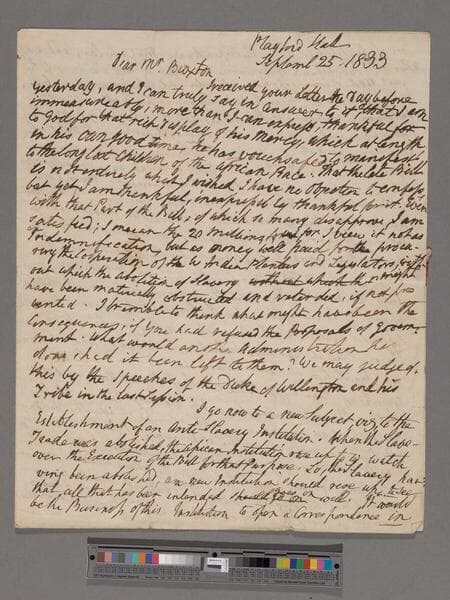 Playford Hall
Septembr 25. 1833
Dear Mr. Buxton
I received your Letter the Day before
yesterday, and I can truly say in answer to it, that I am
immeasureably, more than I can express, thankful for
to God for that rich Display of his Mercy, which at length
in his own good time he has vouchsafed to manifest
to the long lost Children of the African Race. That the late Bill
is not entirely what I wished, I have no Objection to confess,
but yet I am thankful, inexpressibly thankful for it. Even
with that Part of the Bill, of which so many disapprove, I am
satisfied; I mean the 20 millions, for I view it not as an
Indemnification, but as money well paid for the procu-
ring the Cooperation of the W Indian Planters and Legislators, with
out which the abolition of Slavery without which the might
have been materially obstructed and retarded, if not pre
vented. I tremble to think what might have been the
Consequences, if you had refused the Proposals of Govern-
ment. What would another Administration have
done, had it been left to them? We may judge of
this by the Speeches of the Duke of Wellington and his
Tribe in the last Session.
I go now to a new Subject viz to the
Establishment of an Anti Slavery Institution. When the Slave-
Trade was abolished, the African Institution rose up to watch
over the Execution of the Bill for that Purpose. So, the Slavery ha-
ving been abolished, a new Institution should rise up to see
that, all that has been intended should go on well. It would
be the Business of this Institution to open a Correspondence in